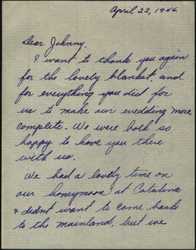 April 22, 1946
Dear Johnny,
I want to thank you again
for the lovely blanket, and
for everything you did for
us to make our wedding more
complete. We were both so
happy to have you there
with us.
We had a lovely time on
our honeymoon at Catalina
& didn't want to come back
to the mainland, but we